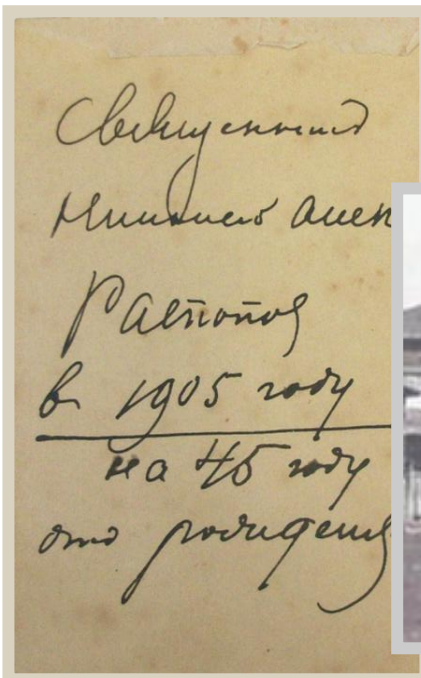 Священникъ
Алек
Распопов
в 1905 году
на 45 году
отъ рождения